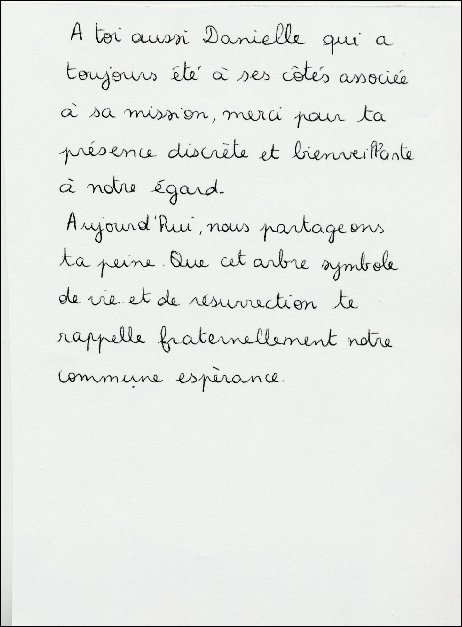 A toi aussi Danielle qui a
toujours été à ses côtés associée
à sa mission, merci pour ta
présence discrète et bienveillante
à notre égard.
Aujourd'hui, nous partageons
ta peine. Que cet arbre symbole
de vie et de resurrection te
rappelle fraternellement notre
commune espèrance.